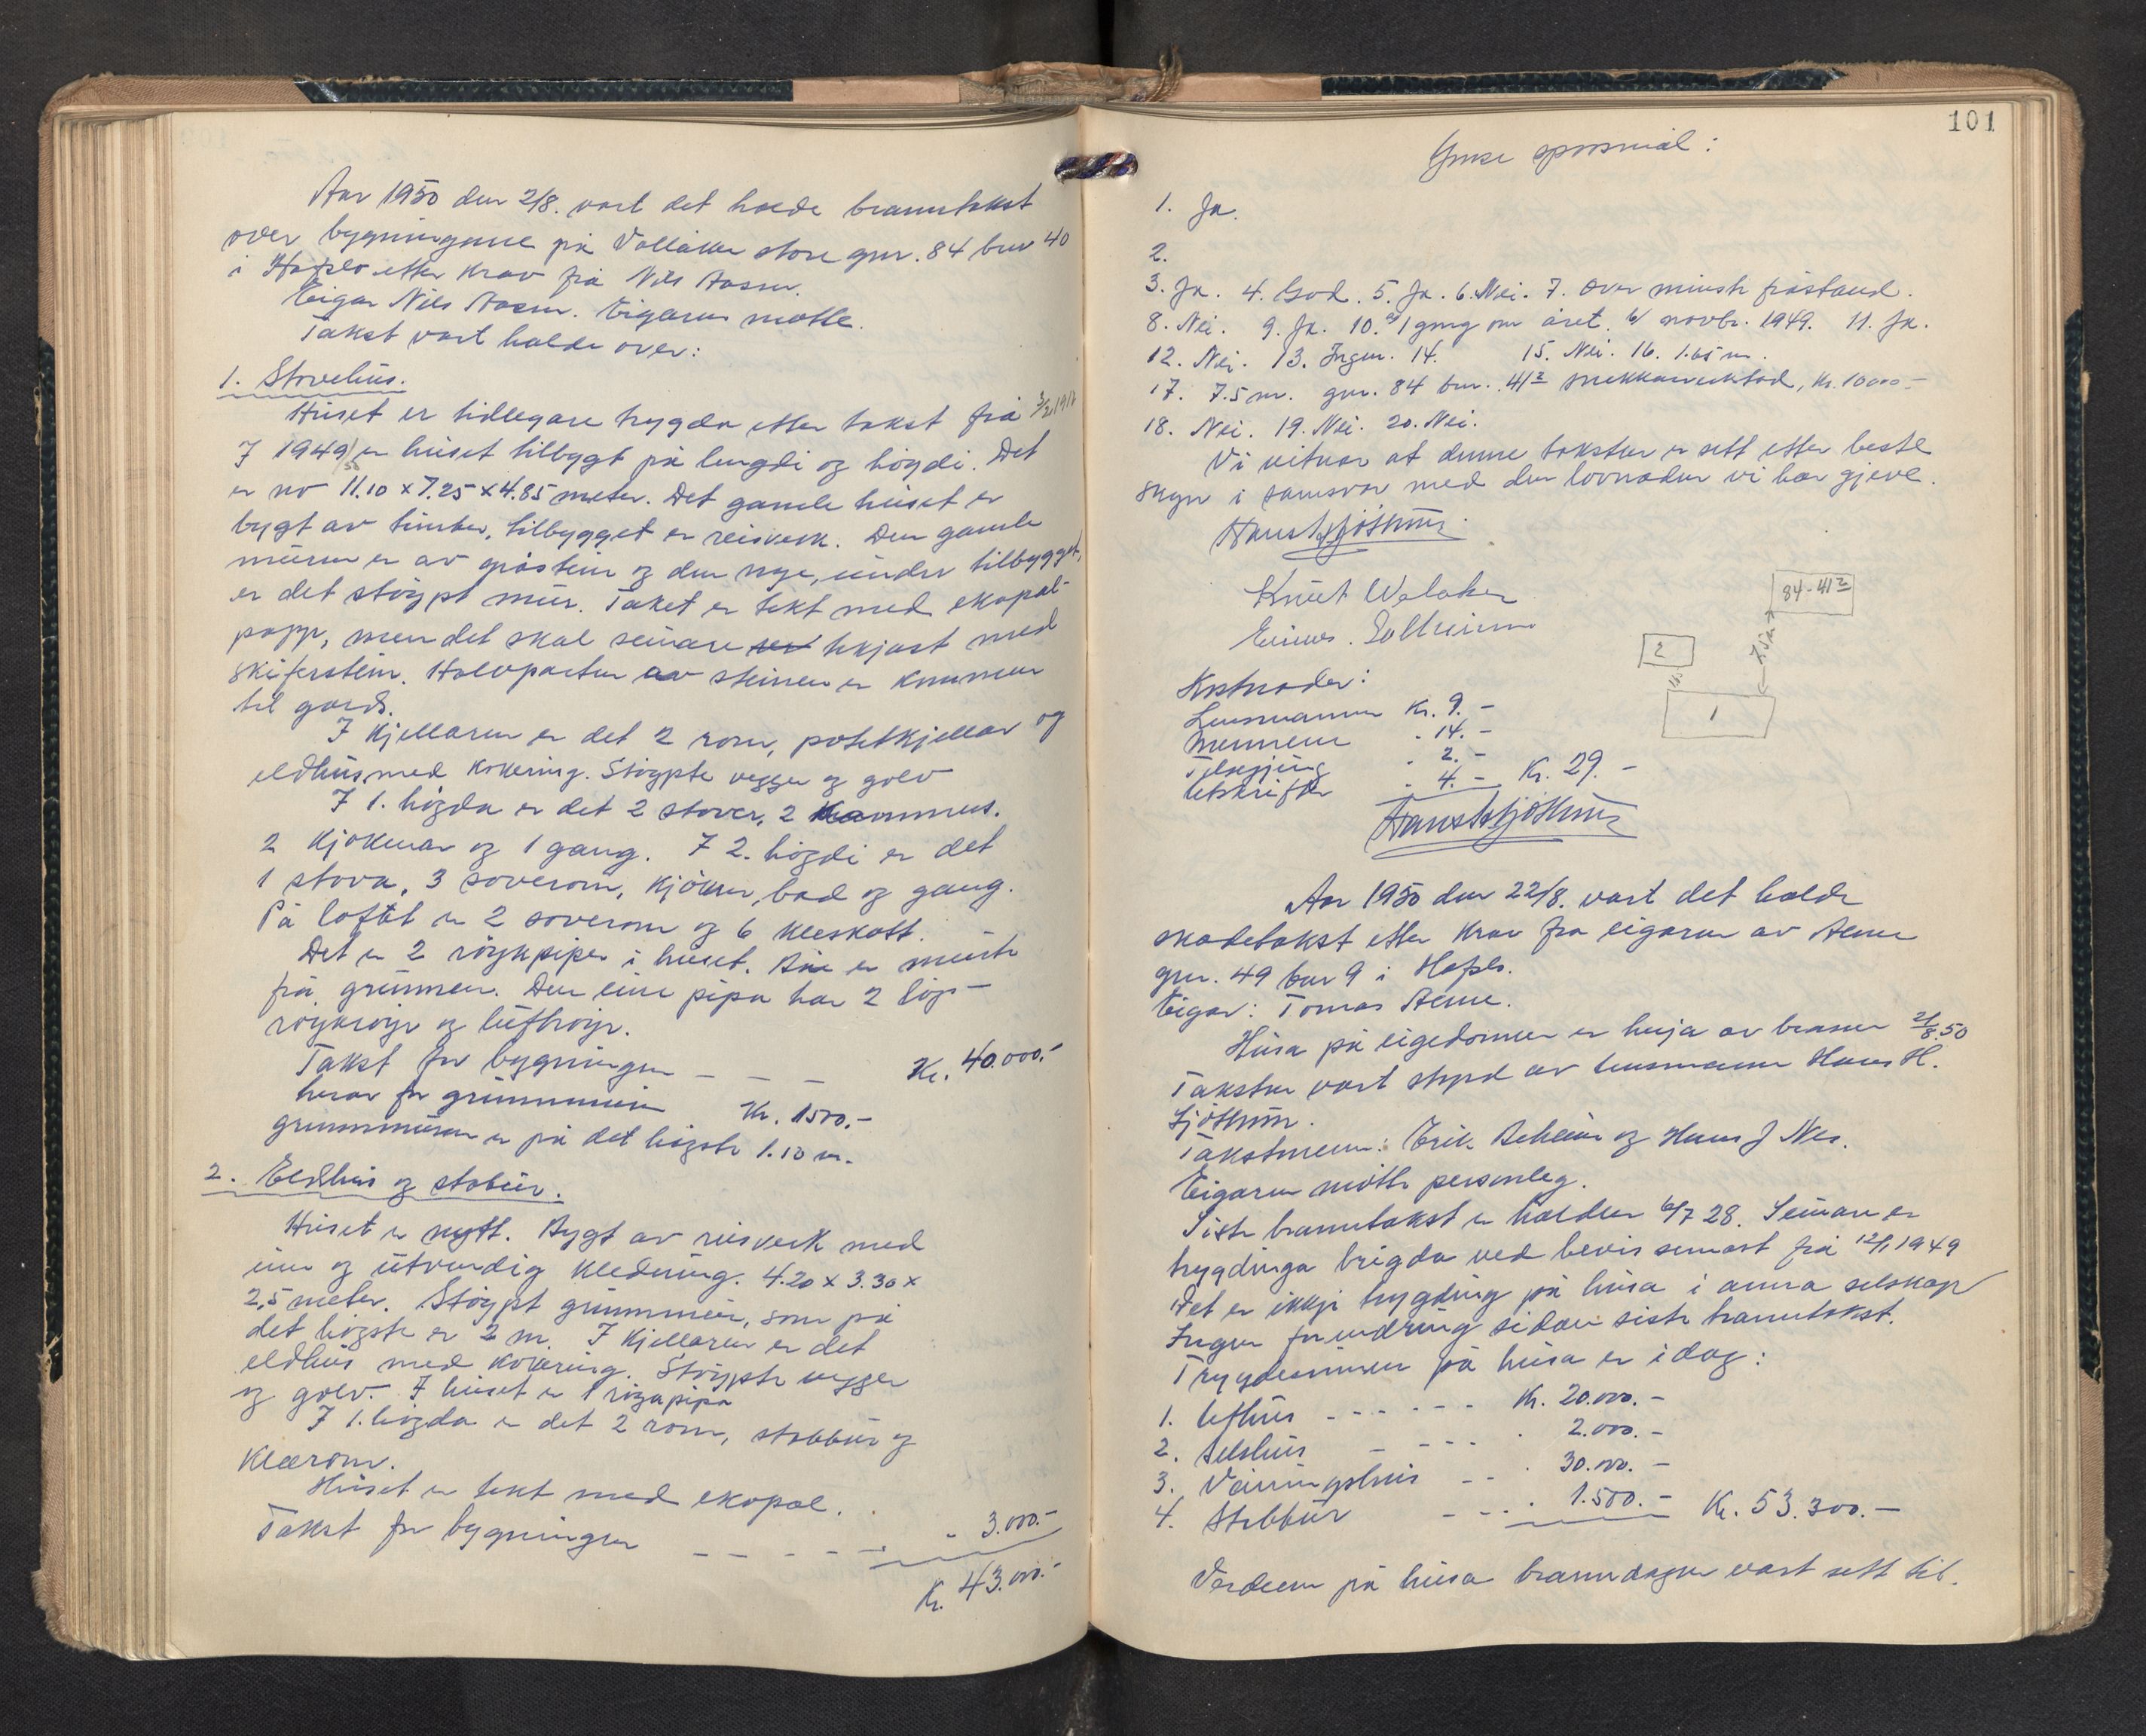 Aar 1950 den 2/8. vart det halde branntakst
over bygningane på Vollåker store gnr. 84 bnr 40
i Hafslo etter krav frå Nils Aasen.
Eigar Nils Aasen. Eigaren møtte.
Takst vart halde over:
1. Stovehus.
Huset er tidlegare trygda etter takst frå 3/2 1917
I 1949/50 er huset tilbygt på lengdi og høgdi. Det
er no 11.10 x 7.25 x 4.85 meter. Det gamle huset er
bygt av timber, tilbygget er reisverk. Den gamle
muren er av gråstein og den nye, under tilbygget,
er det støypt mur. Taket er tekt med ekopal-
papp, men det skal seinare tekjast med
skiferstein. Halvparten av steinen er kommen
til gards.
I kjellaren er det 2 rom, potetkjellar og
eldhus med kokering. Støypte vegger og golv
I 1. høgda er det 2 stover, 2 kammers.
2 kjøkenar og 1 gang. I 2. høgdi er det
1 stova, 3 soverom, kjøken, bad og gang.
På loftet er 2 soverom og 6 kleskott.
Det er 2 røykpiper i huset. Båe er murte
frå grunnen. Den eine pipa har 2 løp -
røykrøyr og luftrøyr.
Takst for bygningen - - - Kr. 40.000.-
herav for grunnmuren Kr. 1500.-
grunnmuren er på det høgste 1.10 m.
2. Eldhus og stabur.
Huset er nytt. Bygt av reisverk med
inn og utvendig kledning. 4.20 x 3.30 x
2,5 meter. Støypt grunnmur, som på
det høgste er 2 m. I kjellaren er det
eldhus med kokering. Støypte vegger
og golv. I huset er 1 røykpipa
I 1. høgda er det 2 rom, stabbur og
klærom.
Huset er tekt med ekopal.
Takst for bygningen - - - - - " 3.000.-
Kr. 43.000.-
101
Ymse spørsmål:
1. Ja.
2.
3. Ja. 4. God. 5. Ja. 6. Nei. 7. Over minste fråstand.
8. Nei. 9. Ja. 10. a) 1 gong om året. b) novbr. 1949. 11. Ja.
12. Nei. 13. Ingen. 14. 15. Nei. 16. 1.65 m.
17. 7.5 m. gnr. 84 bnr. 41² snekkarverkstad, kr. 10000.-
18. Nei. 19. Nei. 20. Nei.
Vi vitnar at denne taksten er sett etter beste
skyn i samsvar med den lovnaden vi har gjeve.
Hans H Sjøthun.
Knut Walaker
84-41²
7.5 m
2
1
Kostnader:
Lensmannen Kr. 9.-
Mennene " 14.-
Tilsegjing " 2.-
Utskrifter " 4.- Kr. 29.-
Hans H Sjøthun
Aar 1950 den 22/8. vart det halde
skadetakst etter krav fra eigaren av Beheim
gnr. 49 bnr 9 i Hafslo.
Eigar: Tomas
Husa på eigedomen er herja av brann 21/8.50
Taksten vart styrd av lensmann Hans H.
Sjøthun.
Takstmenn: Erik Beheim og Hans J Nes.
Eigaren møtte personleg.
Siste branntakst er halden 6/7 28. Seinare er
trygdinga brigda ved bevis senast frå 12/1 1949
Det er ikkje trygding på husa i anna selskap
Ingen forendring sidan siste branntakst.
Trygdesummen på husa er i dag:
1. Uthus - - - - - - Kr. 20.000.-
2. Selshus - - - - . 2.000.-
3. Våningshus - - . 30.000.-
4. Stabbur - - . 1.500.- Kr. 53.300.-
Verdien på husa branndagen vart sett til.